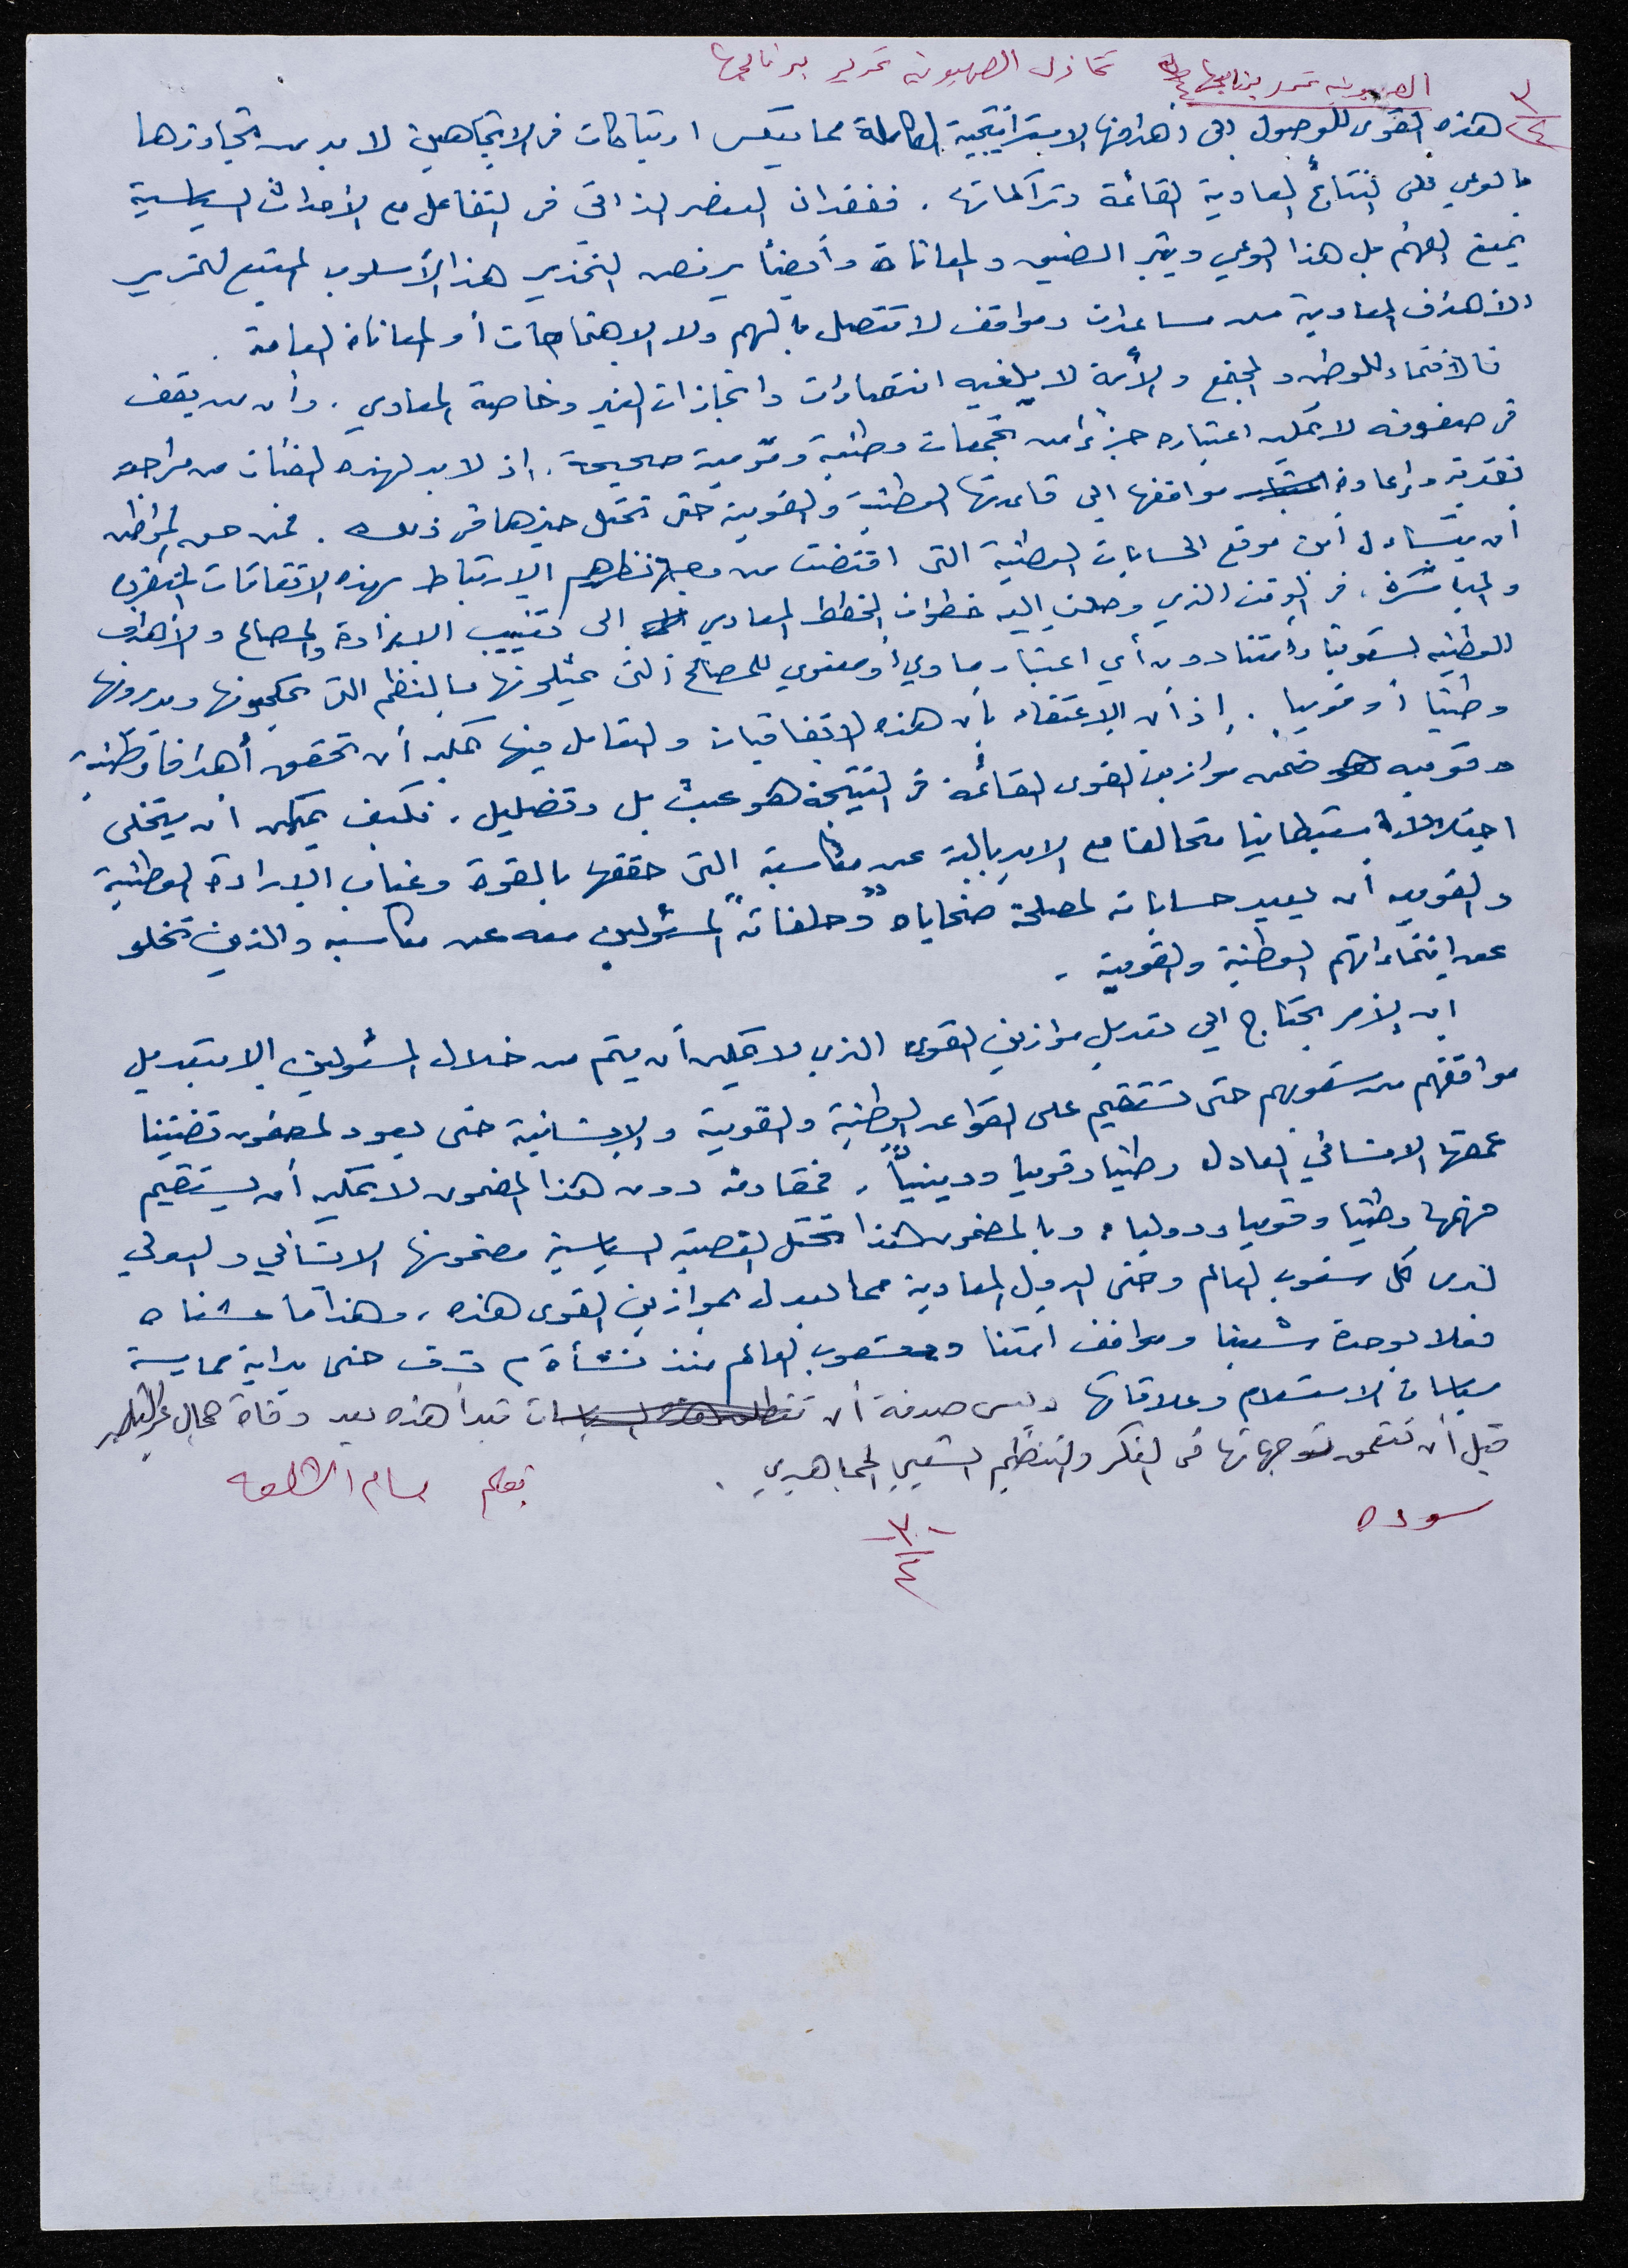 الصهيونية تمرر برنامجها تخاذل الصهيونية تمرير برنامجها
٣/٤
هذه القوى للوصول الى أهدافها الاستراتيجية الكاملة مما يعكس ارتباكات في الاتجاهين لا بد من تجاوزها
بالوعي على النتائج المعادية القائمة وتراكماتها . ففقدان العنصر الذاتي في التفاعل مع الأحداث السياسية
يمنع الفهم بل هذا الوعي ويثير الضيق والمعاناة وأيضاً يرفض التخدير هذا الأسلوب المتبع لتمرير
الأهداف المعادية من مساعدات ومواقف لا تتصل بالهم ولا الاهتمامات أو المعاناة العامة .
فالانتماء للوطن والمجتمع والأمة لا يلغيه انتصارات وانجازات الغير وخاصة المعادي . وان من يقف
في صفوفه لا يمكن اعتباره جزءاً من تجمعات وطنية وقومية صحيحة . إذ لا بد لهذه الفئات من مراجعة
نقدية وإعادة مواقفها الى قاعدتها الوطنية والقومية حتى تحتل حيزها في ذلك . فمن حق المواطن
أن يتساءل أين موقع الحسابات الوطنية التي اقتضت من وجهة نظرهم الارتباط بهذه الاتفاقات المنفردة
والمباشرة ، في الوقت الذي وصلت اليه خطوات المخطط المعادي الى تغييب الارادة والمصالح والأهداف
الوطنية لشعوبنا وأمتنا دون أي اعتبار مادي أو معنوي للمصالح التي يمثلونها بالنظم التي يحكمونها ويديرونها
وطنيا أو قوميا . إذ أن الاعتقاد بأن هذه الاتفاقيات والتعامل فيها يمكن أن تحقق أهدافا وطنية
وقومية ضمن موازين القوى القائمة في النتيجة هو عبث بل وتضليل . فكيف يمكن أن يتخلى
احتلالا استيطانيا متحالفا مع الامبريالية عن مكاسبه التي حققها بالقوة وغياب الارادة الوطنية
والقومية أن يعيد حساباته لمصلحة ضحاياه "وحلفائه" المسئولين معه عن مكاسبه والذين تخلو
عن انتماءاتهم الوطنية والقومية .
ان الأمر يحتاج الى تعديل موازين القوى الذي لا يمكن أن يتم من خلال المسئولين الا بتعديل
مواقفهم من شعوبهم حتى تستقيم على القواعد الوطنية والقومية والانسانية حتى يعود لمضمون قضيتنا
عمقها الانساني العادل وطنيا وقوميا ودينياً . فمقاومة دون هذا المضمون لا يمكن أن يستقيم
فهمها وطنيا وقوميا ودوليا . وبالمضمون هذا تحتل القضية السياسية مضمونها الانساني والدولي
لدى كل شعوب العالم وحتى الدول المعادية مما يعدل بموازين القوى هذه . وهذا ما عشناه
فعلا بوحدة شعبنا ومواقف أمتنا وشعوب العالم منذ نشأة م ت ف حتى بداية ممارسة
سياسات الاستسلام وعلاقاتها وليس صدفة أن تبدأ هذه بعد وفاة جمال عبد الناصر
قبل أن تتعمق توجهاتها في الفكر والتنظيم الشعبي الجماهيري .
بقلم بسام الشكعه
سوده
٣/٤